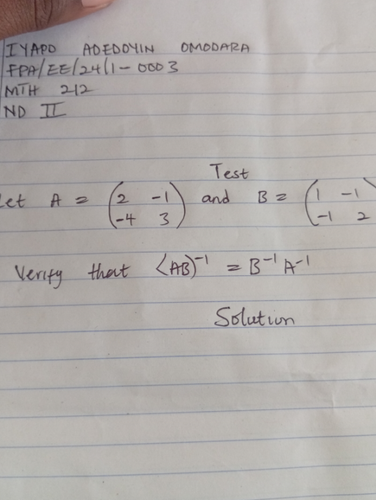 IYAPO ADEDOYIN OMODARA
FPA/EE/24/1-0003
MTH 212
ND II
Test
Let A = (2 -1
-4 3) and B = (1 -1
-1 2)
Verify that (AB)⁻¹ = B⁻¹ A⁻¹
Solution